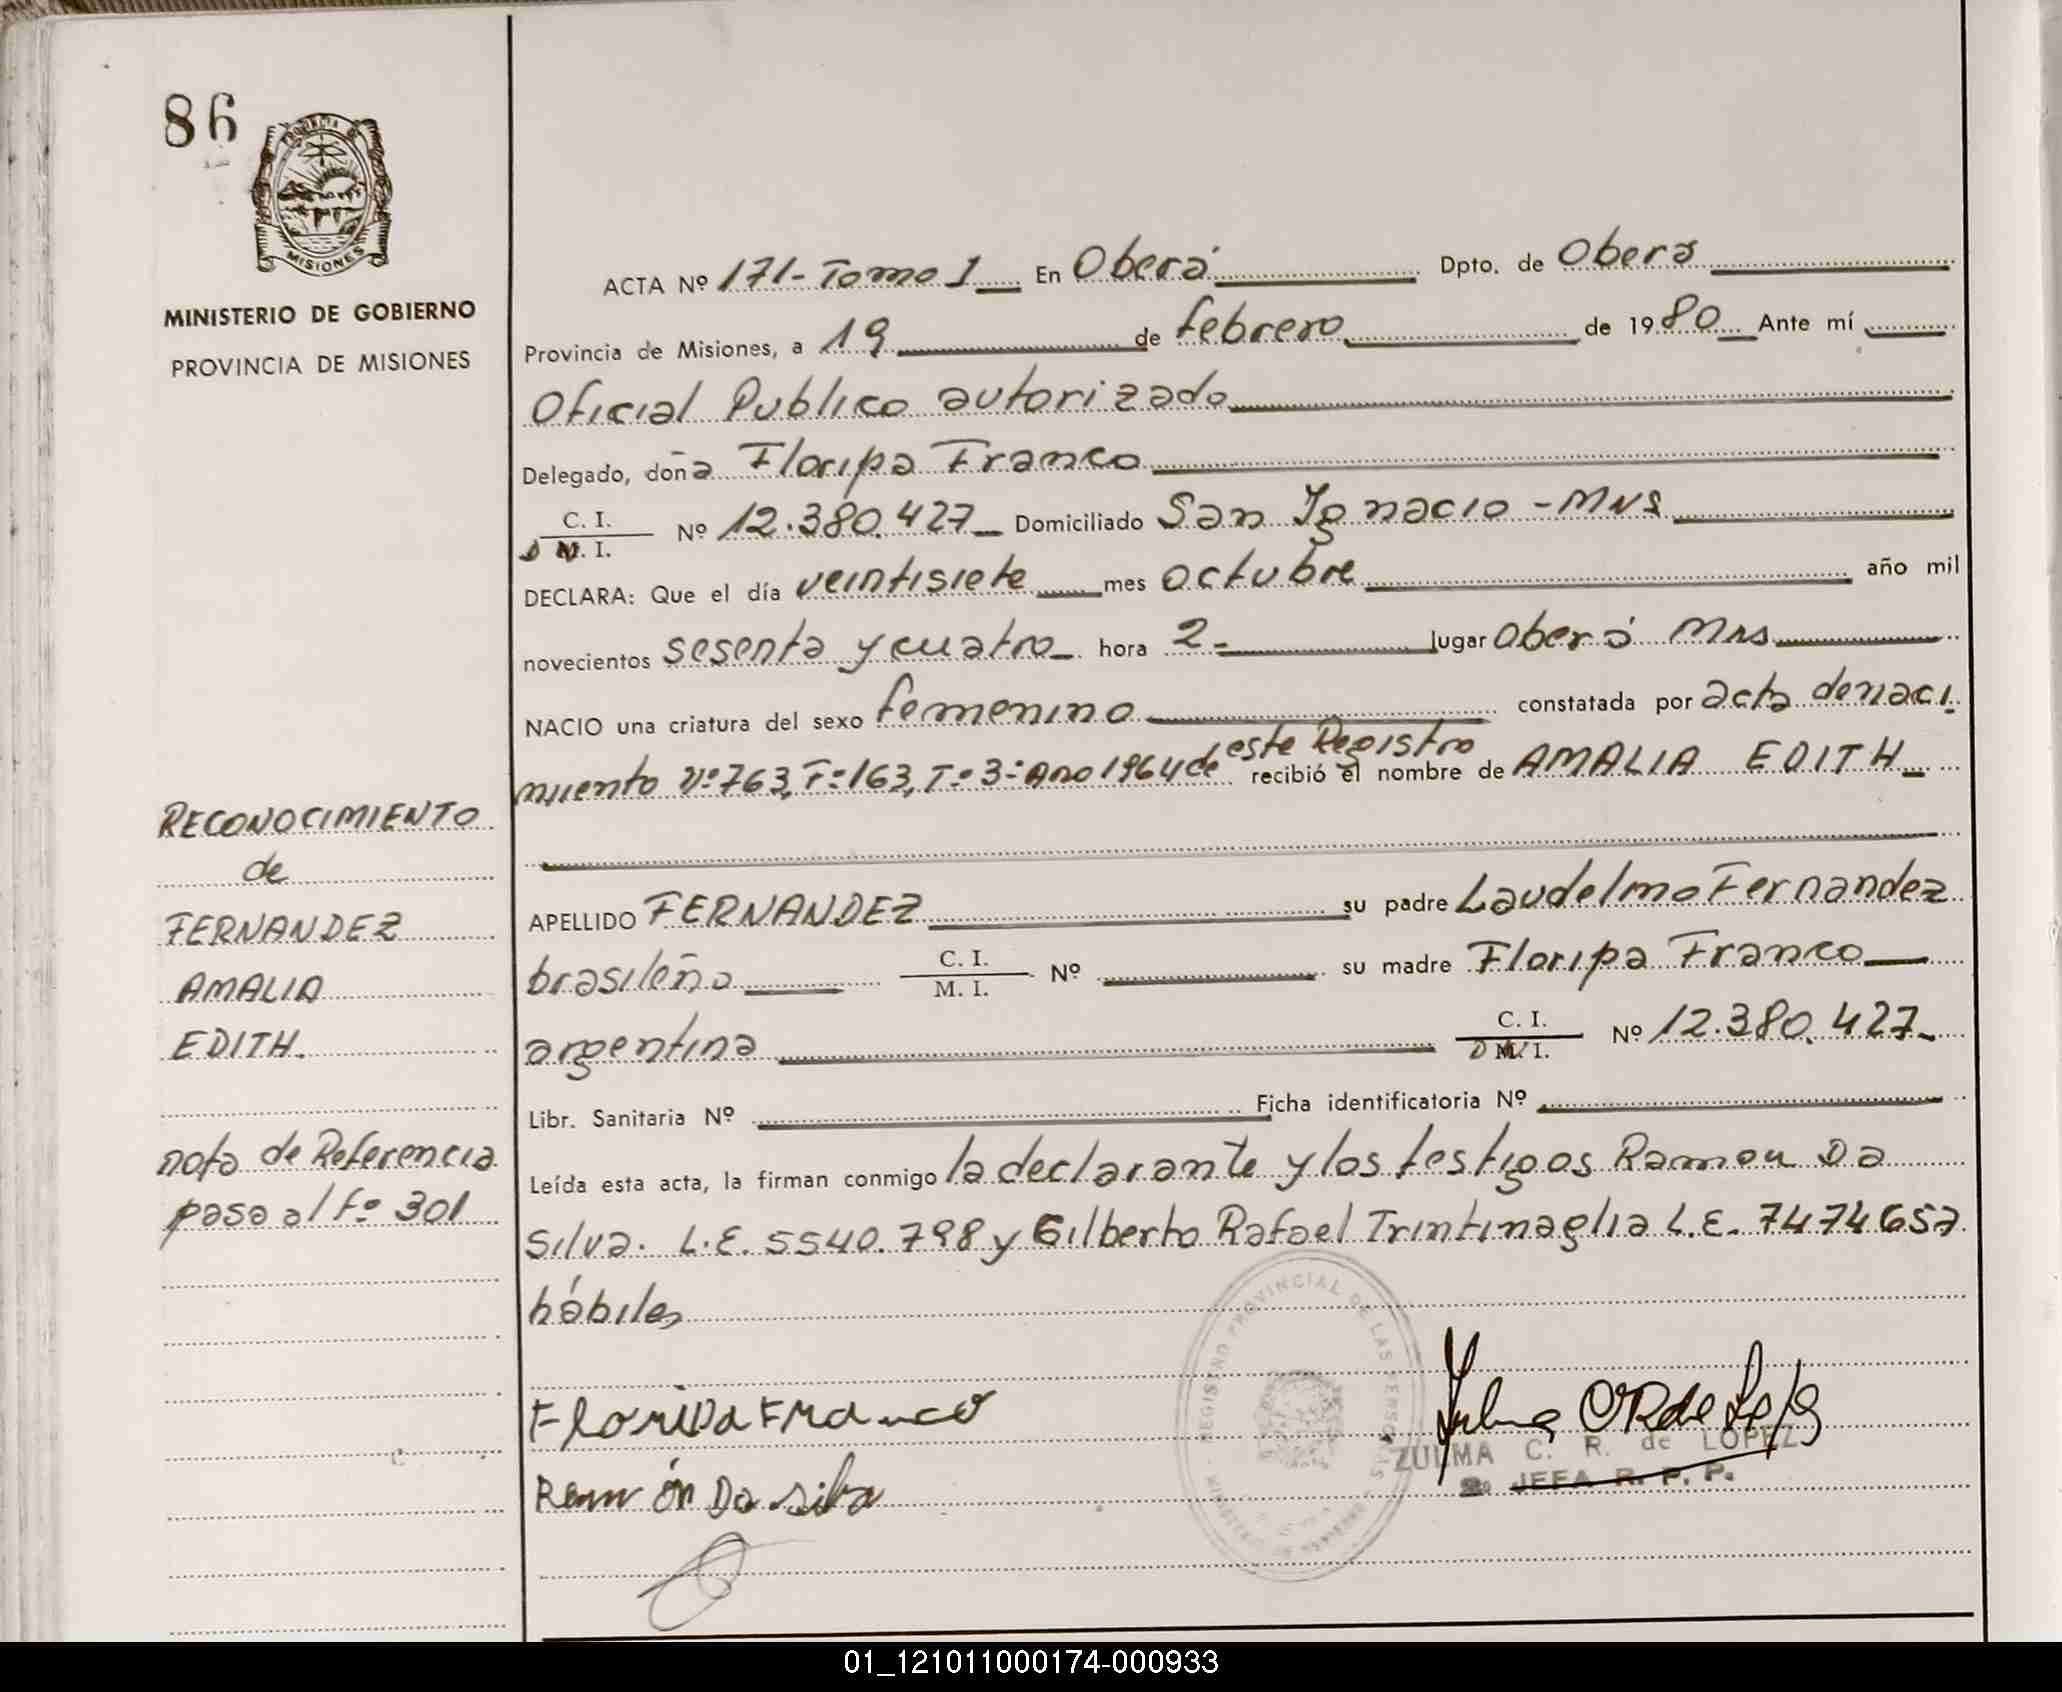 86
PROVINCIA DE
MISIONES
MINISTERIO DE GOBIERNO
PROVINCIA DE MISIONES
RECONOCIMIENTO
de
FERNANDEZ
AMALIA
EDITH.
nota de Referencia
pasa al fº 301
ACTA Nº 171-Tomo 1 En Oberá Dpto. de Obera
Provincia de Misiones, a 19 de febrero de 1980 Ante mí
Oficial Publico autorizado
Delegado, doña Floripa Franco
C. I.
D N. I. Nº 12.380.427 Domiciliado San Ignacio - Mns
DECLARA: Que el día veintisiete mes octubre año mil
novecientos sesenta y cuatro hora 2- lugar Oberá Mns
NACIO una criatura del sexo femenino constatada por acta denaci
miento Nº 763, Fº 163, Tº 3- Año 1964 de este Registro recibió el nombre de AMALIA EDITH
APELLIDO FERNANDEZ su padre Laudelmo Fernandez
brasileño C. I. M. I. Nº su madre Floripa Franco
argentina C. I. D N I. Nº 12.380.427
Libr. Sanitaria Nº Ficha identificatoria Nº
Leída esta acta, la firman conmigo la declarante y los testigos Ramon Da
Silva. L.E. 5540.798 y Gilberto Rafael Trintinaglia L.E. 7474652
hábiles
Floripa Franco
Ramón Da silva
REGISTRO PROVINCIAL DE LAS PERSONAS
MINISTERIO DE GOBIERNO
ZULMA C. R. de LOPEZ
JEFA R. P. P.
01_121011000174-000933